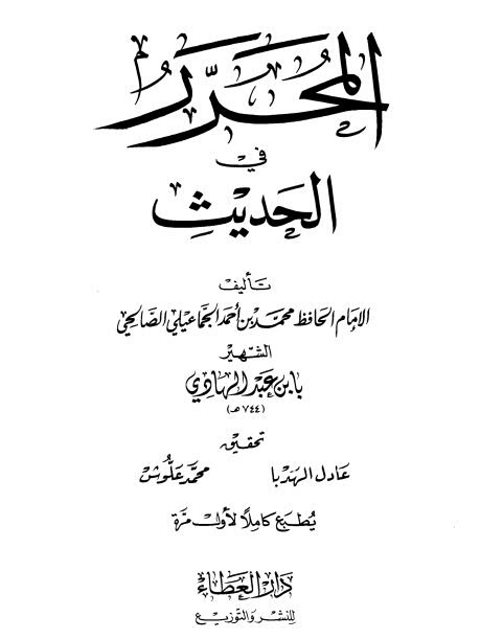 المُحَرَّر
في
الحَديثِ
تأليف
الإمام الحافظ محمد بن أحمد الجماعيلي الصالحي
الشهير
بابن عبد الهادي
(٧٤٤ هـ)
تحقيق
عادل الهدبا محمد علوش
يُطبع كاملًا لأول مرة
دار العطاء
للنشر والتوزيع